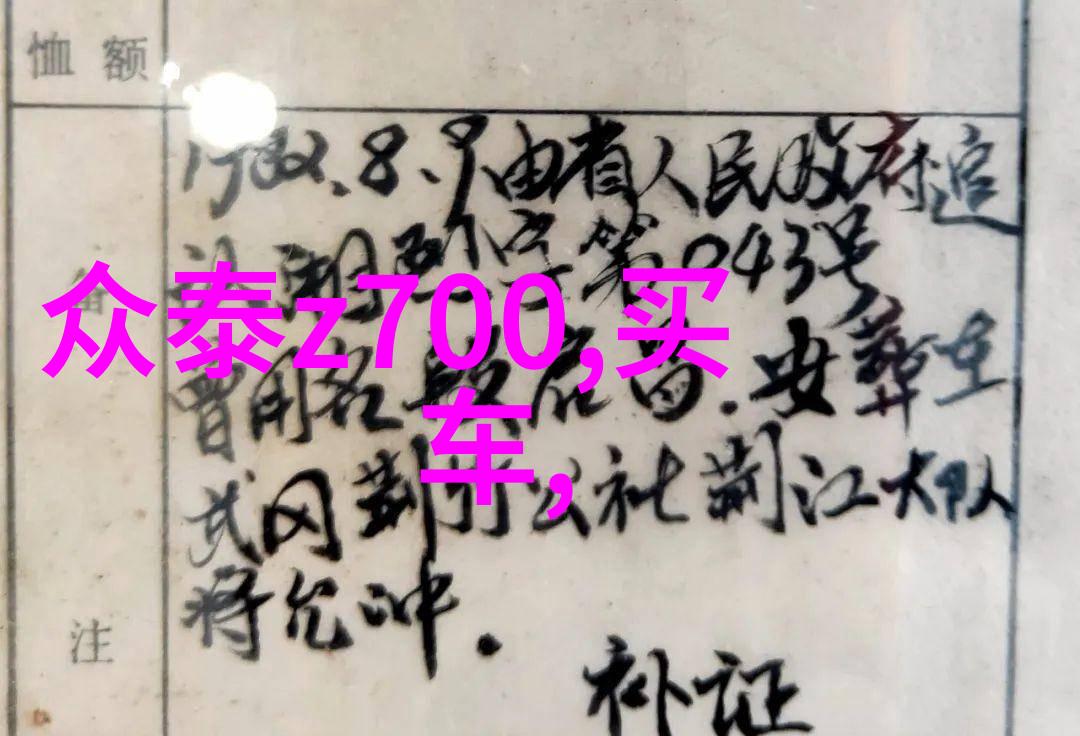 恤额
1982.8.9由省人民政府追
第043号
众泰z700,买
曾用名
车,
安葬在
武冈荆竹公社荆江大队
将允冲.
备
注
补证